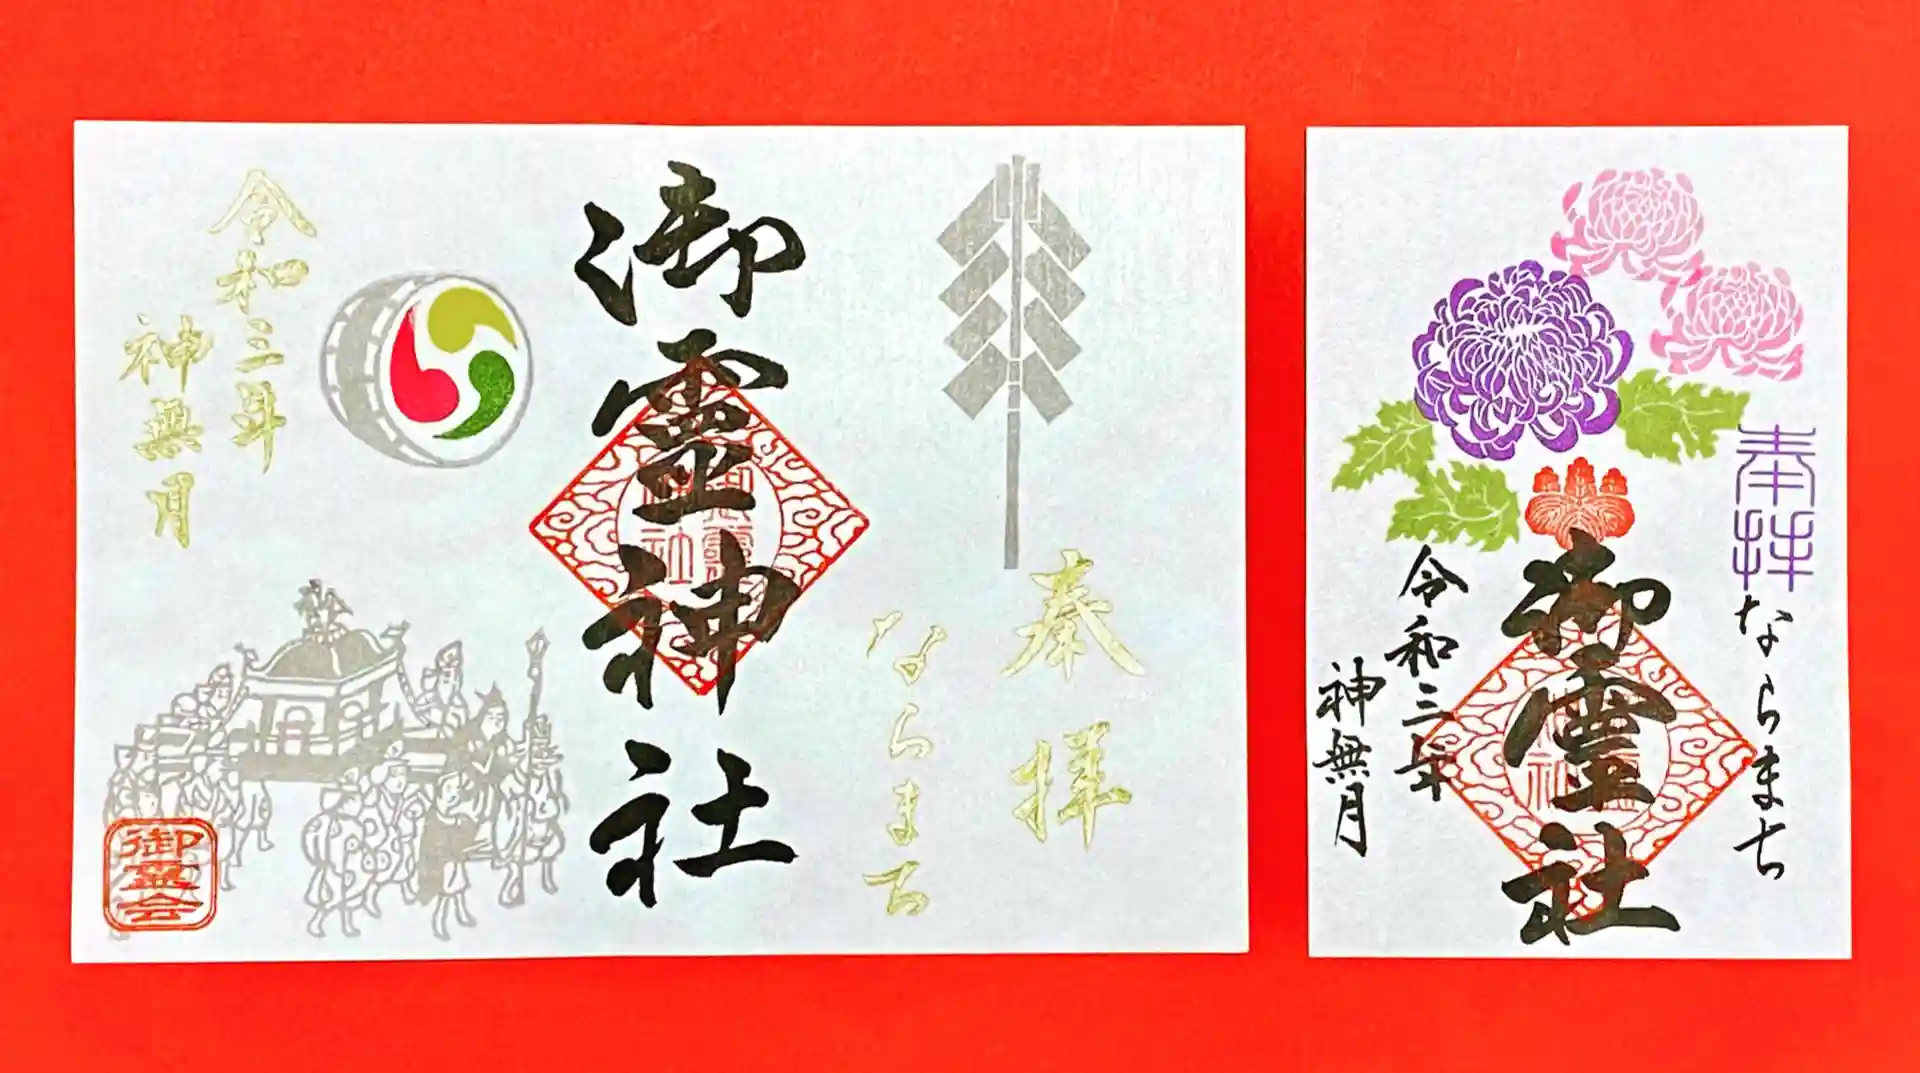 奉拝
ならまち
御霊神社
御霊
神社
令和三年
神無月
御霊会
奉拝
ならまち
御霊社
令和三年
神無月